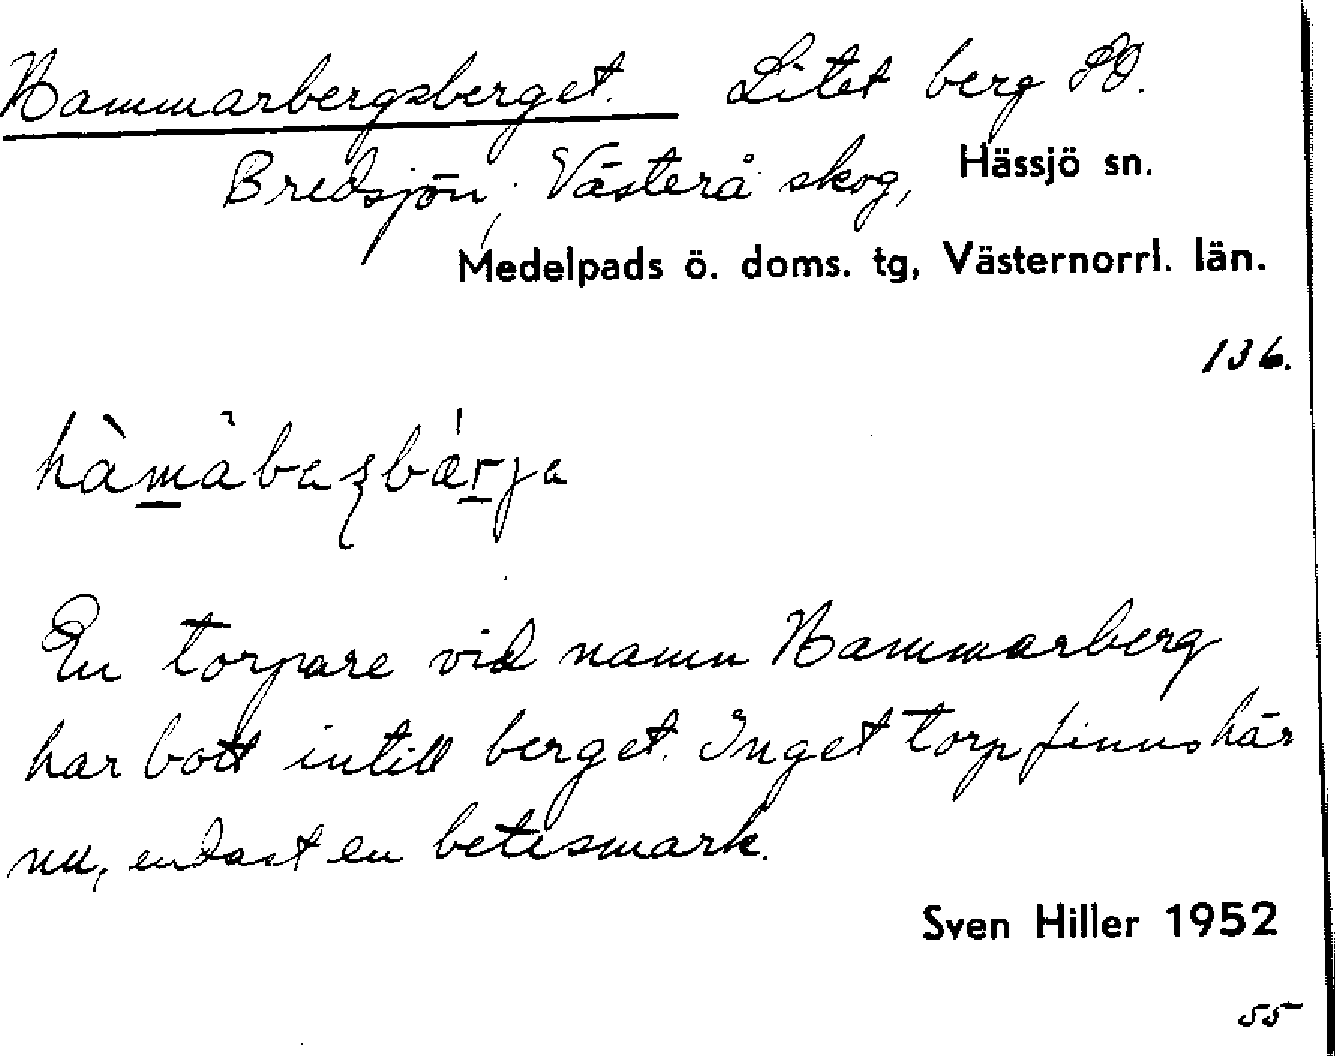 Hammarbergsberget. Litet berg SO.
Bredsjön, Västerå skog, Hässjö sn.
Medelpads ö. doms. tg, Västernorrl. län.
136.
En torpare vid namn Hammarberg
har bott intill berget. Inget torp finns här
nu, endast en betesmark.
Sven Hiller 1952
55